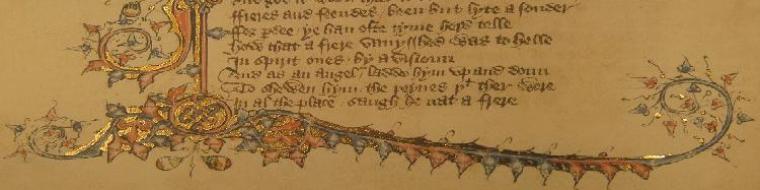 ffreres and feendes / been but lyte a sonder
ffor pdee / ye han ofte tyme herd telle
How that a frere / vanysshed was to helle
In spirit ones / by a visioun
And as an angel / ladde hym vp and doun
To shewen hym / the peynes yt ther were
In al the place / saugh he nat a frere